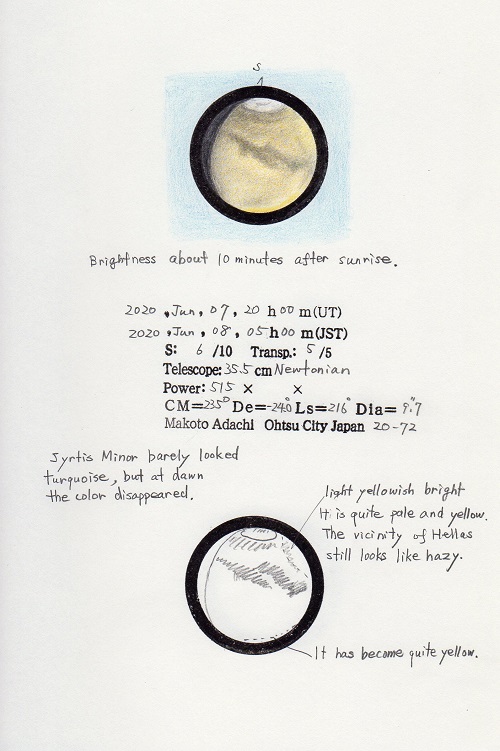 S
Brightness about 10 minutes after sunrise.
2020, Jun, 07, 20 h 00 m (UT)
2020, Jun, 08, 05 h 00 m (JST)
S: 6 /10 Transp.: 5 /5
Telescope: 35.5 cm Newtonian
Power: 515 × ×
CM=235° De=-24.0 Ls=216° Dia= 9."7
Makoto Adachi Ohtsu City Japan 20-72
Syrtis Minor barely looked
turquoise, but at dawn
the color disappeared.
light yellowish bright
It is quite pale and yellow.
The vicinity of Hellas
still looks like hazy.
It has become quite yellow.